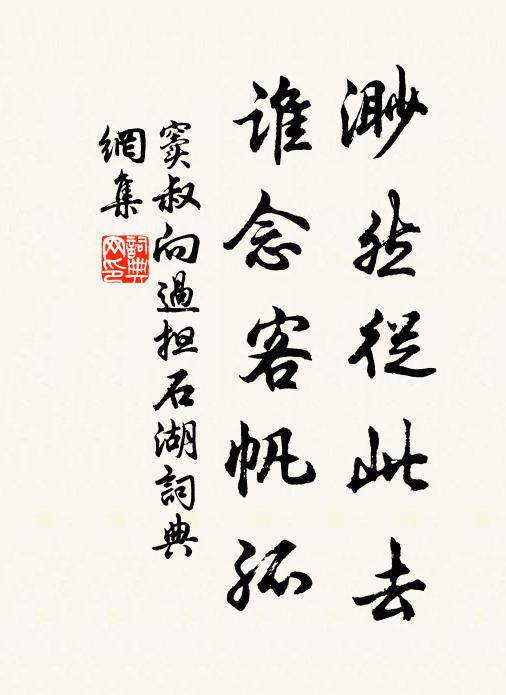 渺然從此去
誰念客帆孤
竇叔向過担石湖詞典
網集
詞典网印